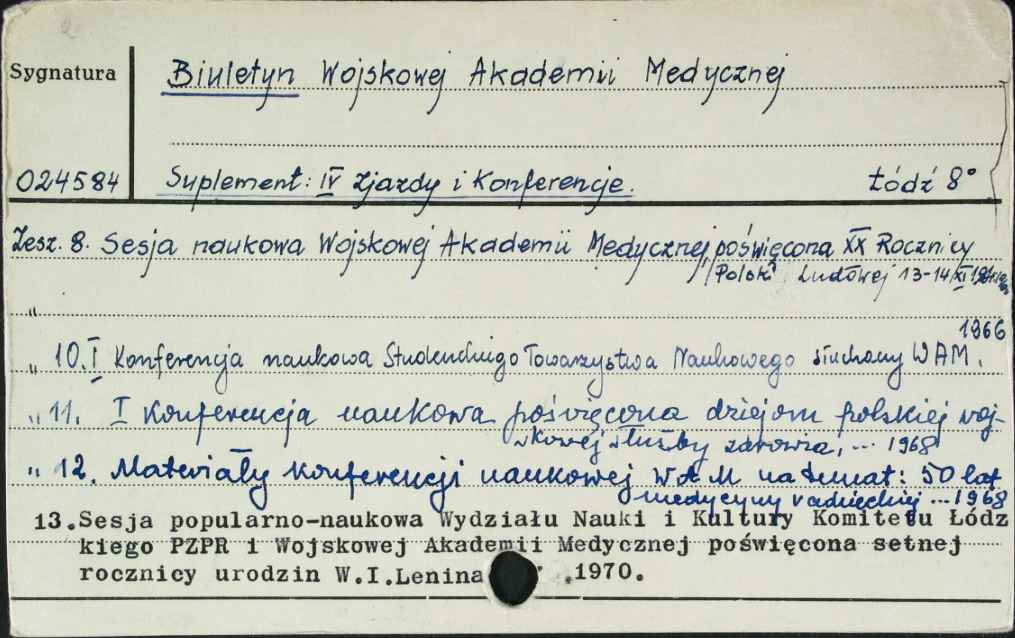 Sygnatura
Biuletyn Wojskowej Akademii Medycznej
024584
Suplement: IV Zjazdy i Konferencje. Łódź 8°
Zesz. 8. Sesja naukowa Wojskowej Akademii Medycznej, poświęcona XX Rocznicy
Polski Ludowej 13-14 XI
"
1966
" 10. I Konferencja naukowa Studenckiego Towarzystwa Naukowego słuchaczy WAM.
" 11. I Konferencja naukowa poświęcona dziejom polskiej woj-
skowej służby zdrowia, ... 1968
" 12. Materiały konferencji naukowej WAM na temat: 50 lat
medycyny radzieckiej ... 1968
13. Sesja popularno-naukowa Wydziału Nauki i Kultury Komitetu Łódz
kiego PZPR i Wojskowej Akademii Medycznej poświęcona setnej
rocznicy urodzin W.I.Lenina .1970.